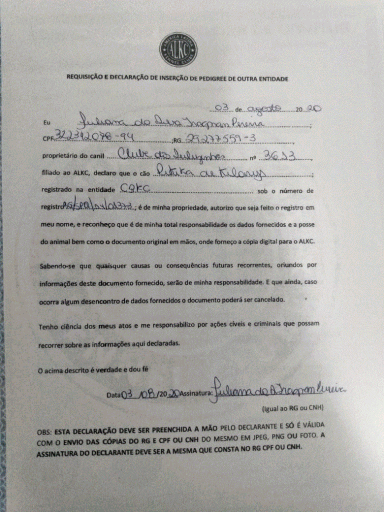 ALKC
REQUISIÇÃO E DECLARAÇÃO DE INSERÇÃO DE PEDIGREE DE OUTRA ENTIDADE
03 de agosto 2020
Eu Juliana da Silva Pereira
CPF 322342098-94 RG 29277559-3
proprietário do canil Clube do nº 3653
filiado ao ALKC, declaro que o cão
registrado na entidade sob o número de
registro, é de minha propriedade, autorizo que seja feito o registro em
meu nome, e reconheço que é de minha total responsabilidade os dados fornecidos e a posse
do animal bem como o documento original em mãos, onde forneço a cópia digital para o ALKC.
Sabendo-se que quaisquer causas ou consequências futuras recorrentes, oriundos por
informações deste documento fornecido, serão de minha responsabilidade. E que ainda, caso
ocorra algum desencontro de dados fornecidos o documento poderá ser cancelado.
Tenho ciência dos meus atos e me responsabilizo por ações cíveis e criminais que possam
recorrer sobre as informações aqui declaradas.
O acima descrito é verdade e dou fé
Data 03/08/2020 Assinatura: Juliana da Pereira
(igual ao RG ou CNH)
OBS: ESTA DECLARAÇÃO DEVE SER PREENCHIDA A MÃO PELO DECLARANTE E SÓ É VÁLIDA
COM O ENVIO DAS CÓPIAS DO RG E CPF OU CNH DO MESMO EM JPEG, PNG OU FOTO. A
ASSINATURA DO DECLARANTE DEVE SER A MESMA QUE CONSTA NO RG CPF OU CNH.